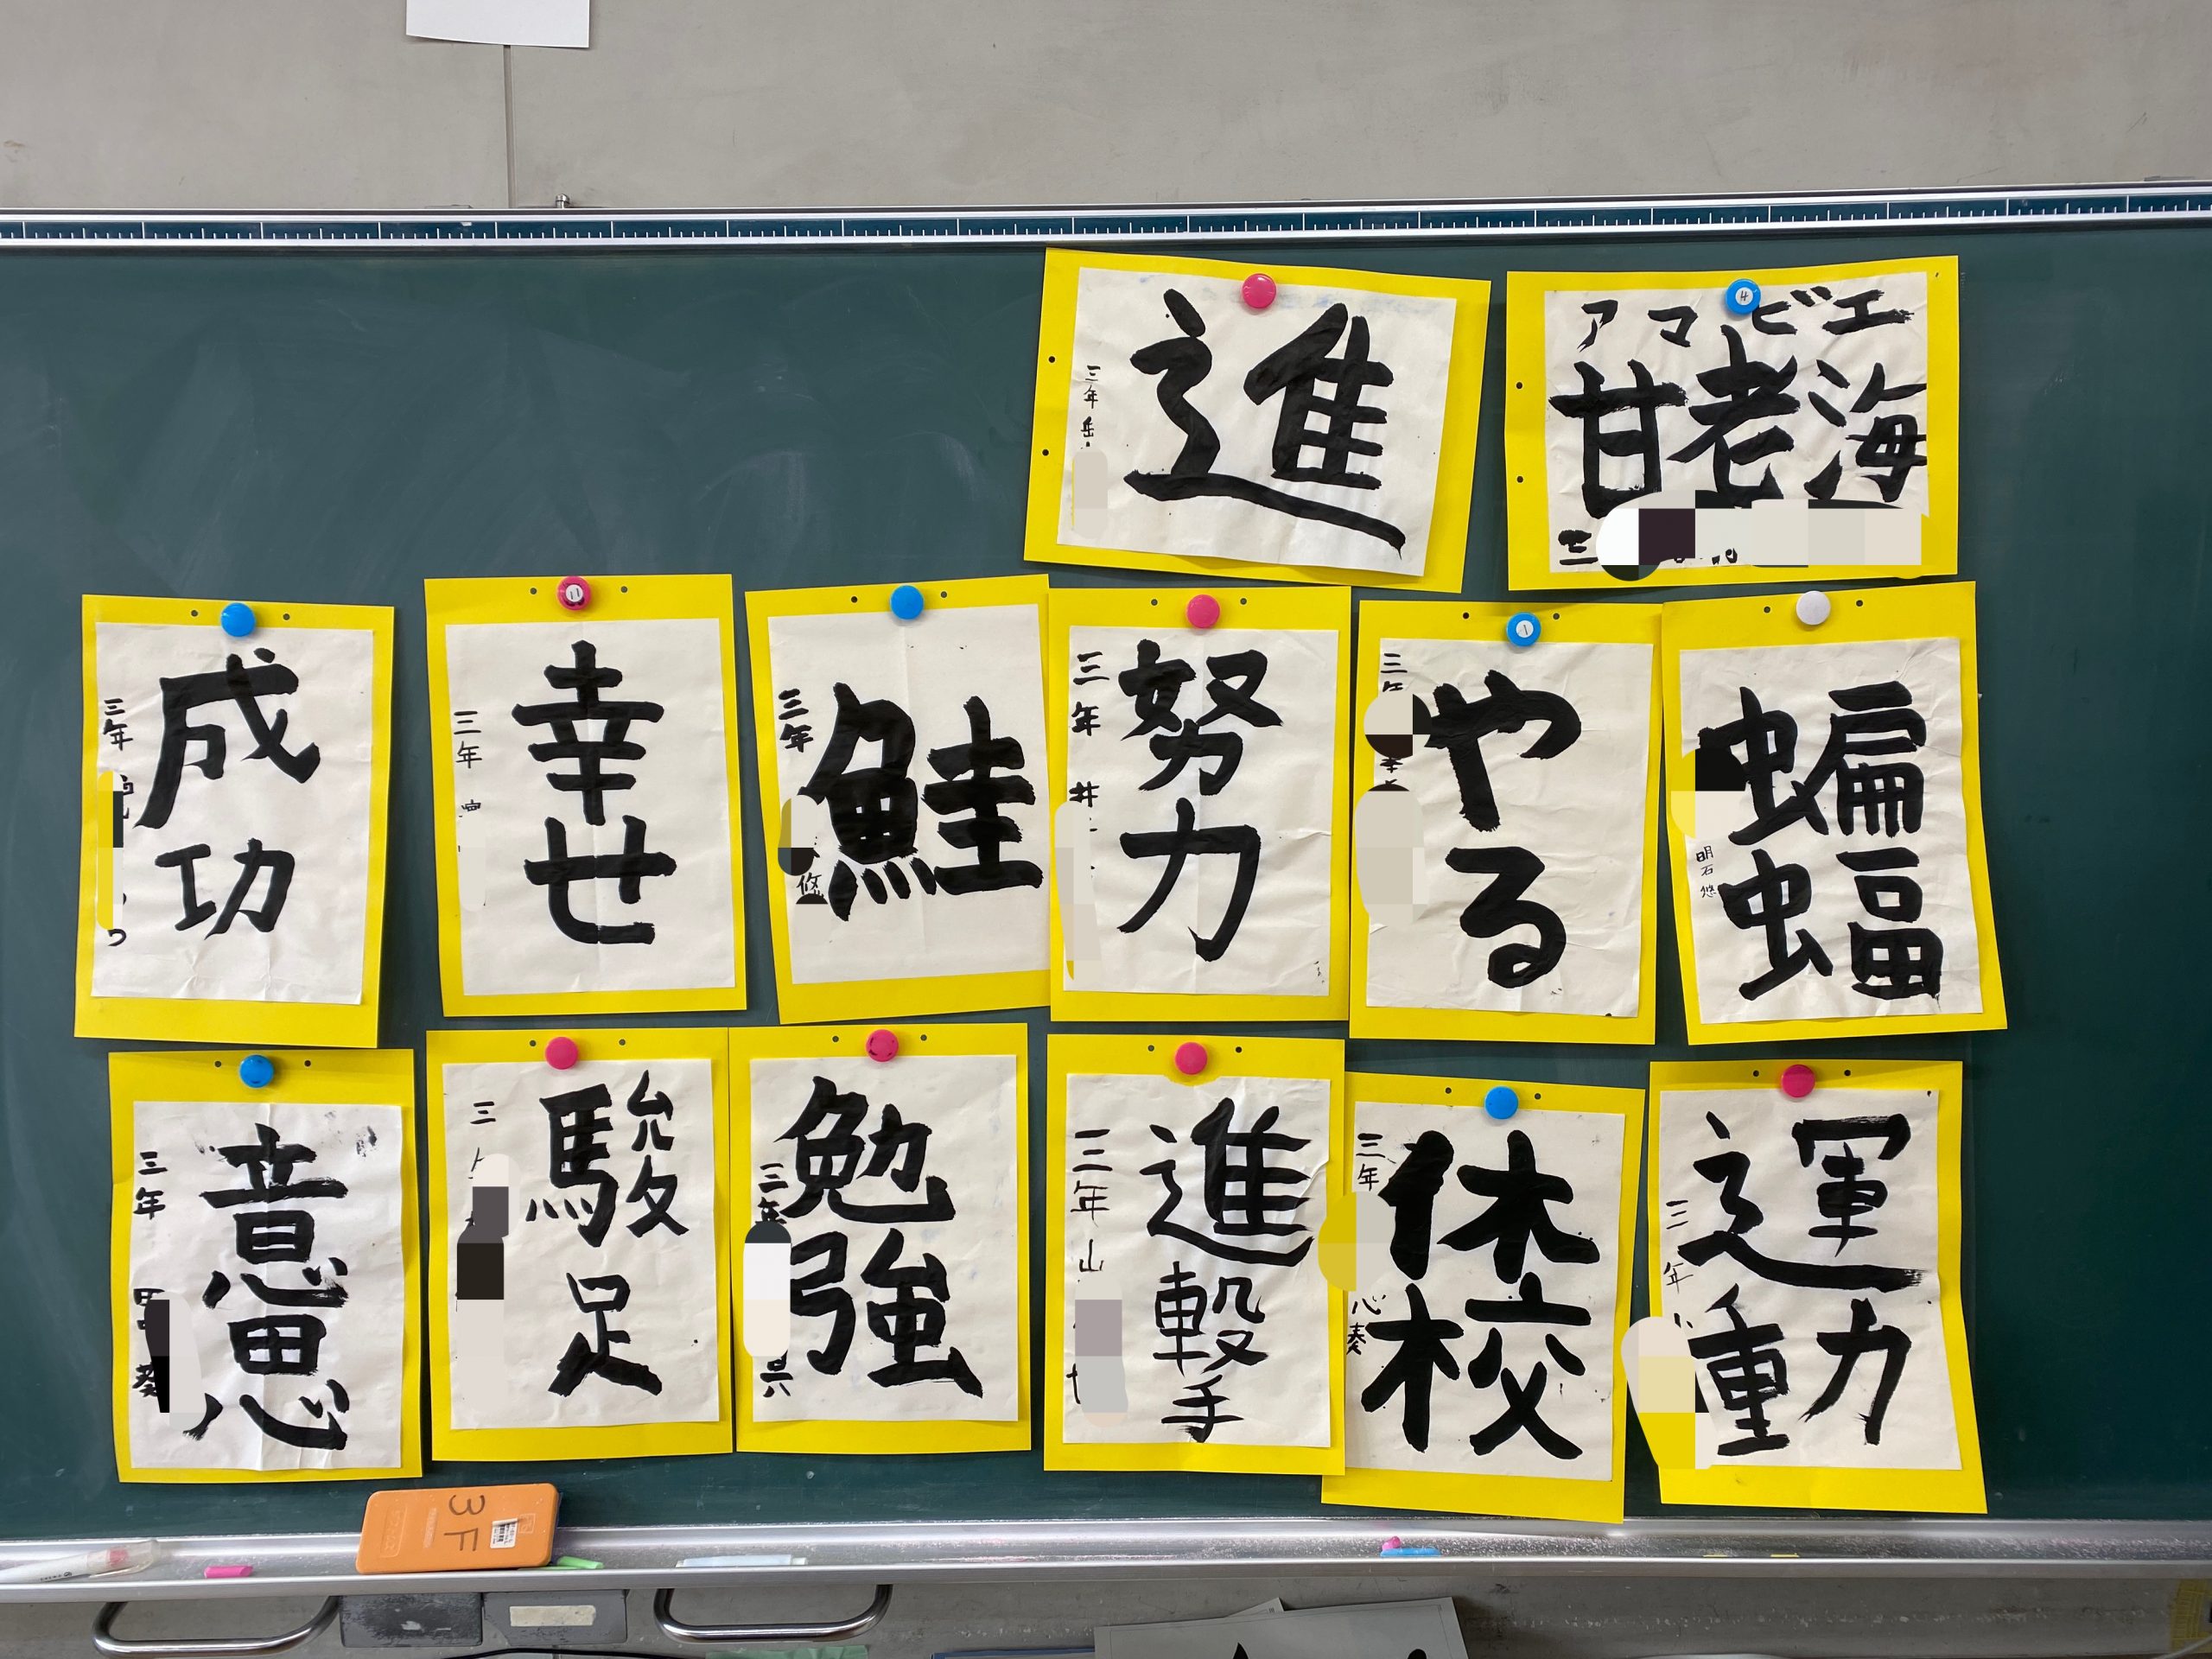 進
三年 岳
アマビエ
甘老海
三
成功
三年
幸せ
三年
鮭
三年
悠
努力
三年 井
やる
三年
蝙蝠
明石 悠
意思
三年
葵
駿足
三
勉強
三年
進撃
三年 山
休校
三年
心奏
運動
三年
3F